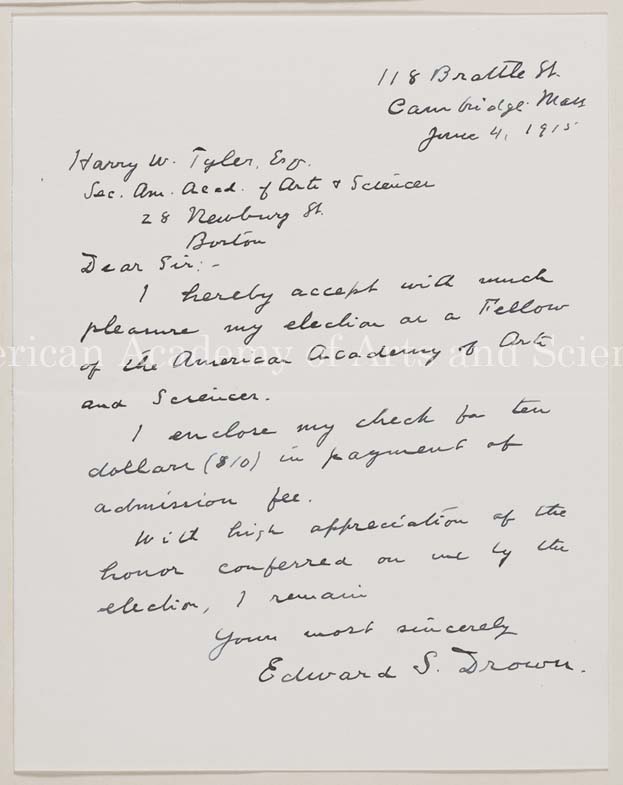 118 Brattle St.
Cambridge. Mass
June 4, 1915
Harry W. Tyler, Esq.
Sec. Am. Acad. of Arts & Sciences
28 Newbury St.
Boston
Dear Sir:-
I hereby accept with much
pleasure my election as a Fellow
of the American Academy of Arts
and Sciences.
I enclose my check for ten
dollars ($10) in payment of
admission fee.
With high appreciation of the
honor conferred on me by the
election, I remain
Yours most sincerely
Edward S. Drown.
erican Academy of Arts and Scien